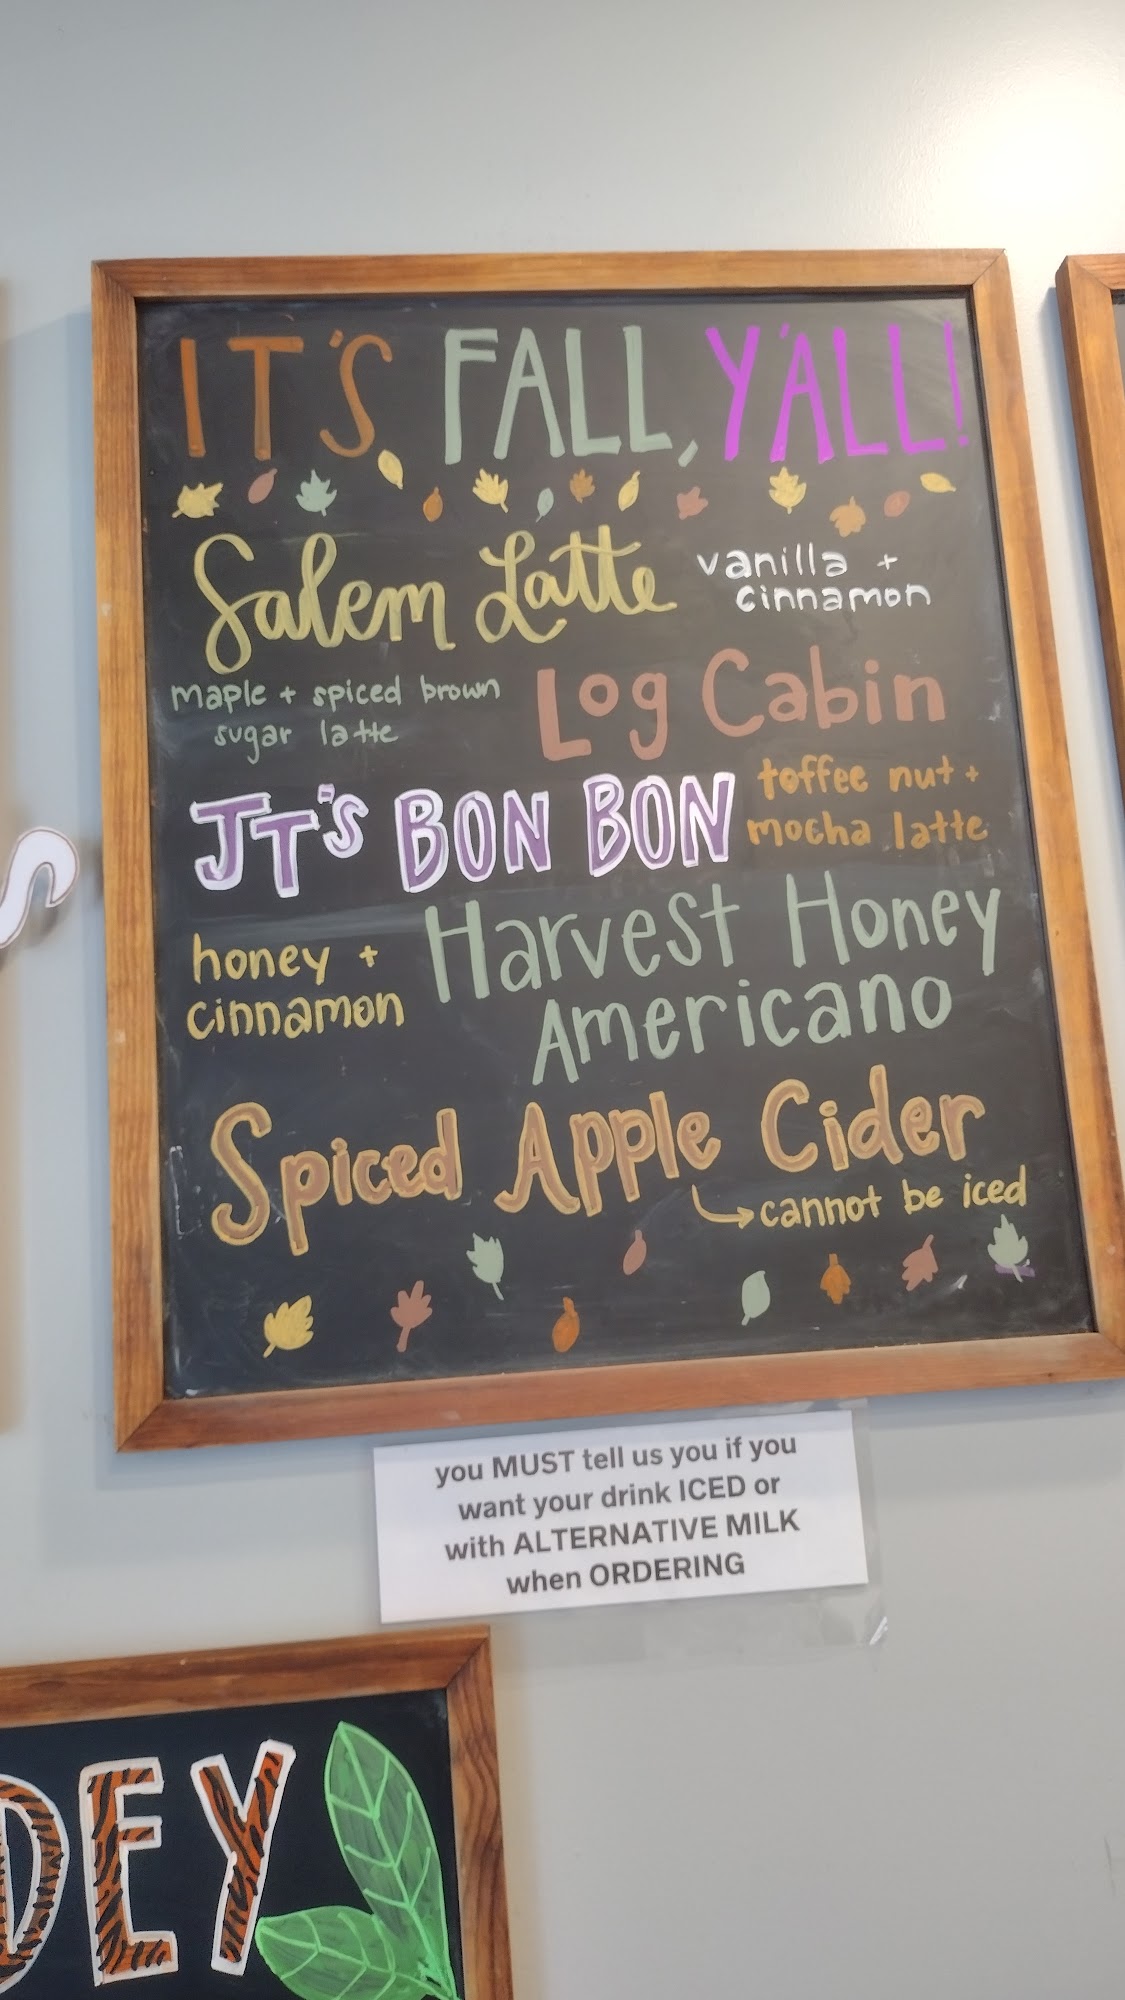 IT'S FALL, Y'ALL!
Salem Latte
vanilla +
cinnamon
maple + spiced brown
sugar latte
Log Cabin
JT'S BON BON
toffee nut +
mocha latte
honey +
cinnamon
Harvest Honey
Americano
Spiced Apple Cider
cannot be iced
you MUST tell us you if you
want your drink ICED or
with ALTERNATIVE MILK
when ORDERING
DEY